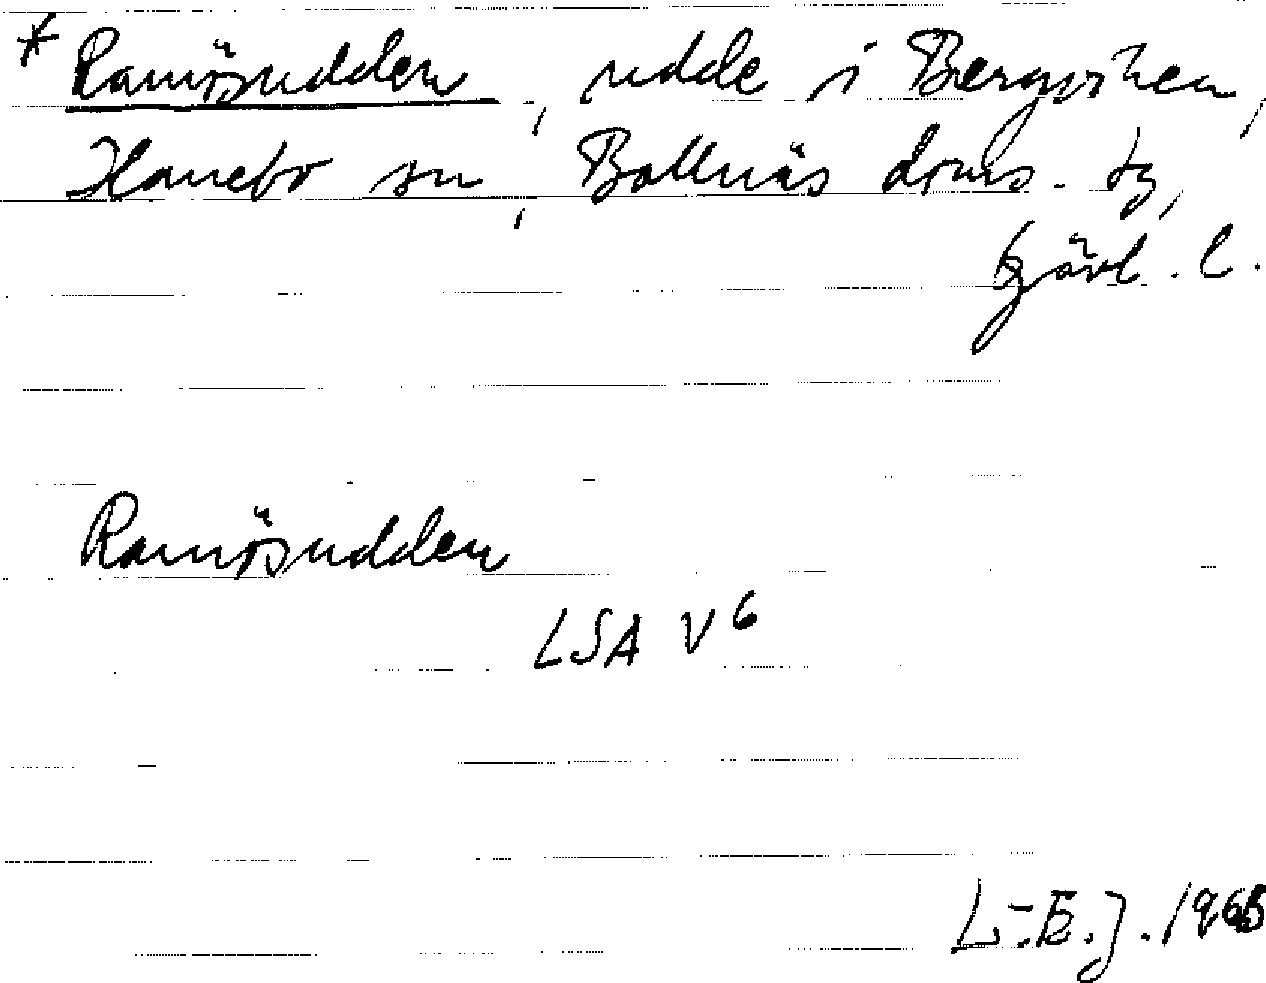 * Ramösudden, udde i Bergviken,
Hanebo sn, Bollnäs doms. tg,
Gävl. l.
Ramösudden
LSA V6
L-E.J. 1968